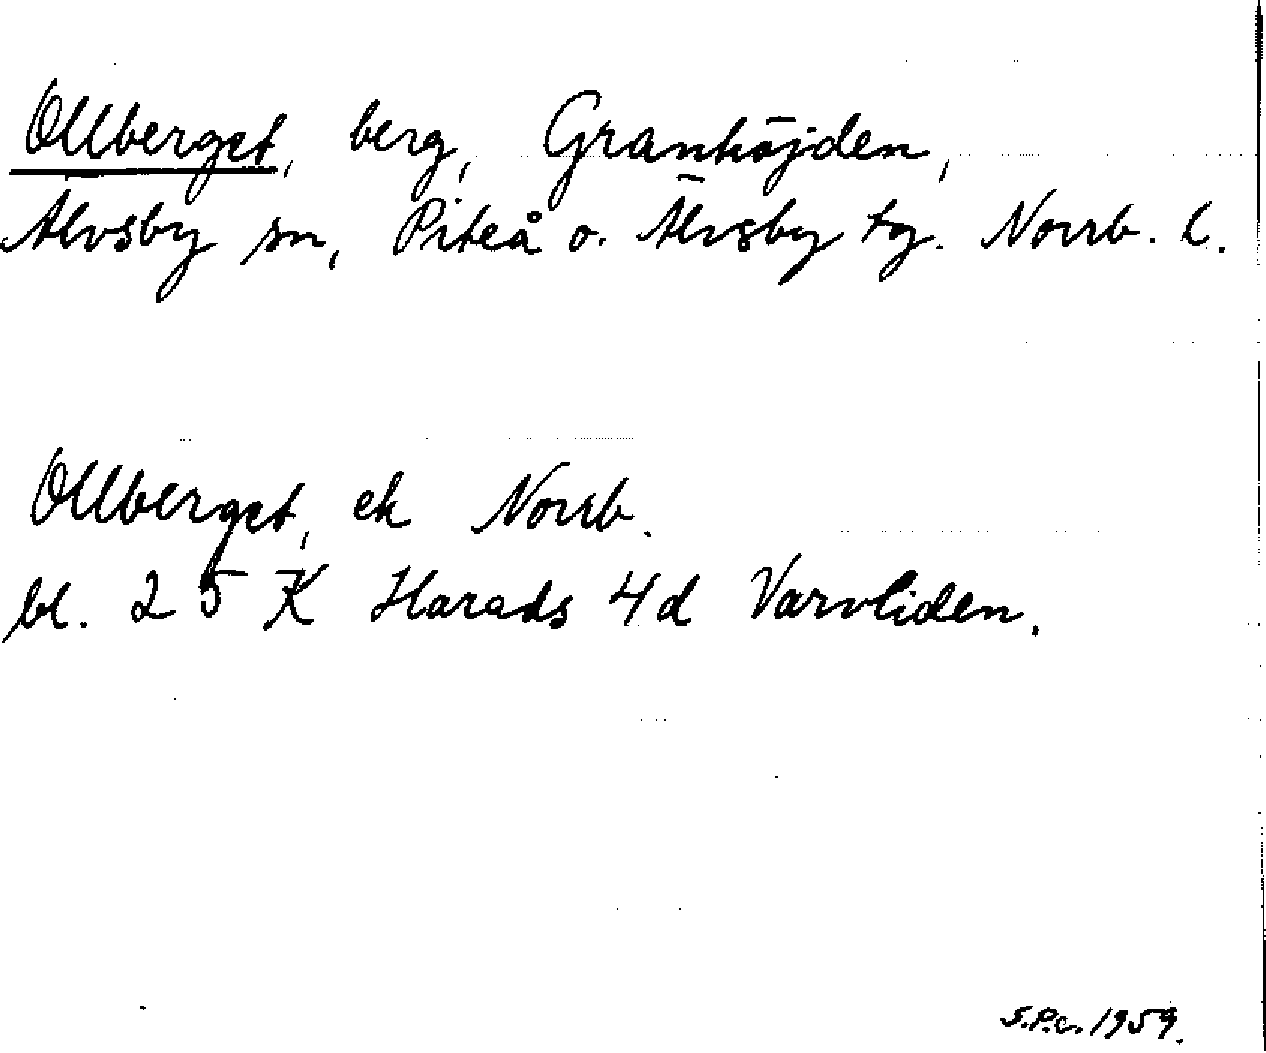 Ollberget, berg, Granhöjden,
Älvsby sn, Piteå o. Älvsby tg. Norrb. l.
Ollberget, ek Norrb.
bl. 25 K Harads 4d Varvliden.
S.P.c. 1959.